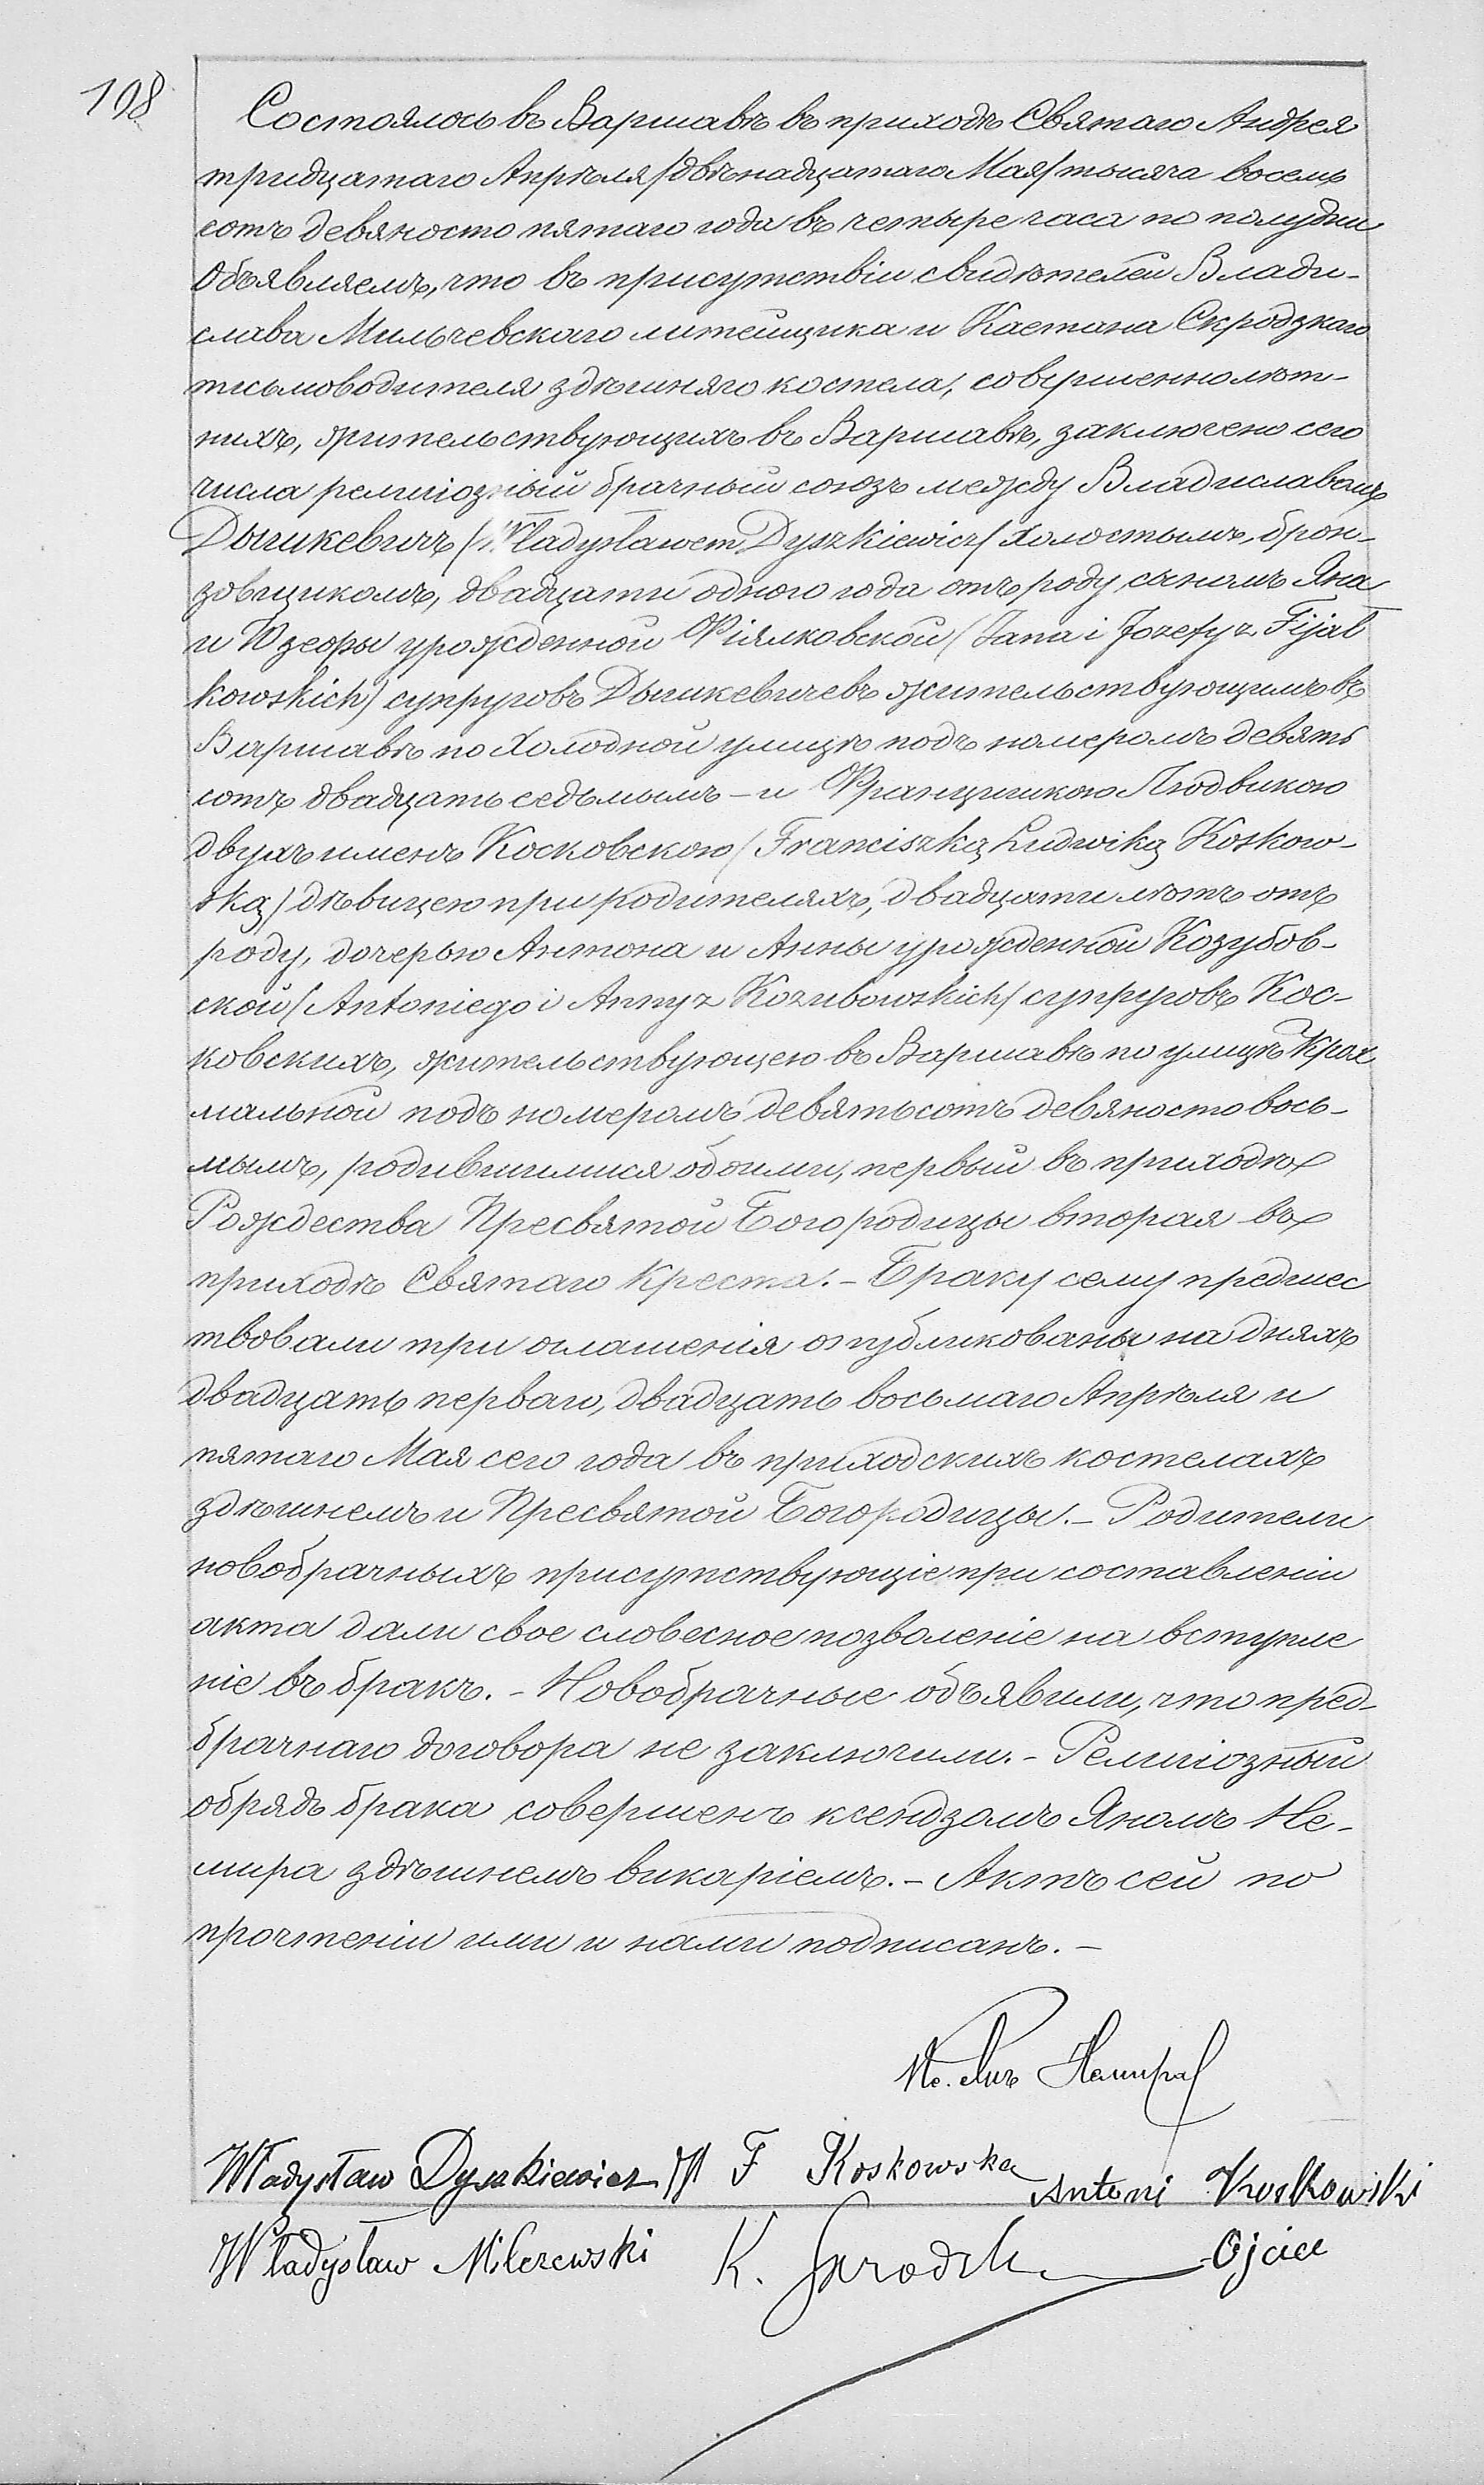 198
Состоялось въ Варшавѣ въ приходѣ Святаго Андрея
тридцатаго Апрѣля /двѣнадцатаго Мая/ тысяча восемь
сотъ девяносто пятаго года въ четыре часа по полудни
Объявляемъ, что въ присутствіи свидѣтелей Влади-
слава Мильчевскаго литейщика и Каетана Скродзкаго
письмоводителя здѣшняго костела, совершеннолѣт-
нихъ, жительствующихъ въ Варшавѣ, заключено сего
числа религіозный брачный союзъ между Владиславомъ
Дышкевичъ /Władysławem Dyszkiewicz/ холостымъ, брон-
зовщикомъ, двадцати одного года отъ роду, сыномъ Яна
и Юзефы урожденной Фіялковской (Jana i Jozefy z Fijał
kowskich) супруговъ Дышкевичевъ жительствующимъ въ
Варшавѣ по Холодной улицѣ подъ номеромъ девять
сотъ двадцать седьмымъ – и Францишкою Людвикою
двухъ именъ Косковскою (Franciszką Ludwiką Koskow-
ską) дѣвицею при родителяхъ, двадцати лѣтъ отъ
роду, дочерью Антона и Анны урожденной Козубов-
ской /Antoniego i Anny z Kozubowskich/ супруговъ Кос-
ковскихъ, жительствующею въ Варшавѣ по улицѣ Крах
мальной подъ номеромъ девятьсотъ девяносто вось-
мымъ, родившимися обоими, первый въ приходѣ
Рождества Пресвятой Богородицы вторая въ
приходѣ Святаго Креста. – Браку сему предшес
твовали три оглашенія опубликованы на дняхъ
двадцать перваго, двадцать восьмаго Апрѣля и
пятаго Мая сего года въ приходскихъ костелахъ
здѣшнемъ и Пресвятой Богородицы. – Родители
новобрачныхъ присутствующіе при составленіи
акта дали свое словесное позволеніе на вступле
ніе въ бракъ. – Новобрачные объявили, что пред-
брачнаго договора не заключили. – Религіозный
обрядъ брака совершенъ ксендзомъ Яномъ Не-
мира здѣшнемъ викаріемъ. – Актъ сей по
прочтеніи ими и нами подписанъ. –
Кс. Янъ Немира
Władysław Dyszkiewicz F Koskowska Antoni Koskowski
Władysław Milczewski K. Skrodzki Ojciec